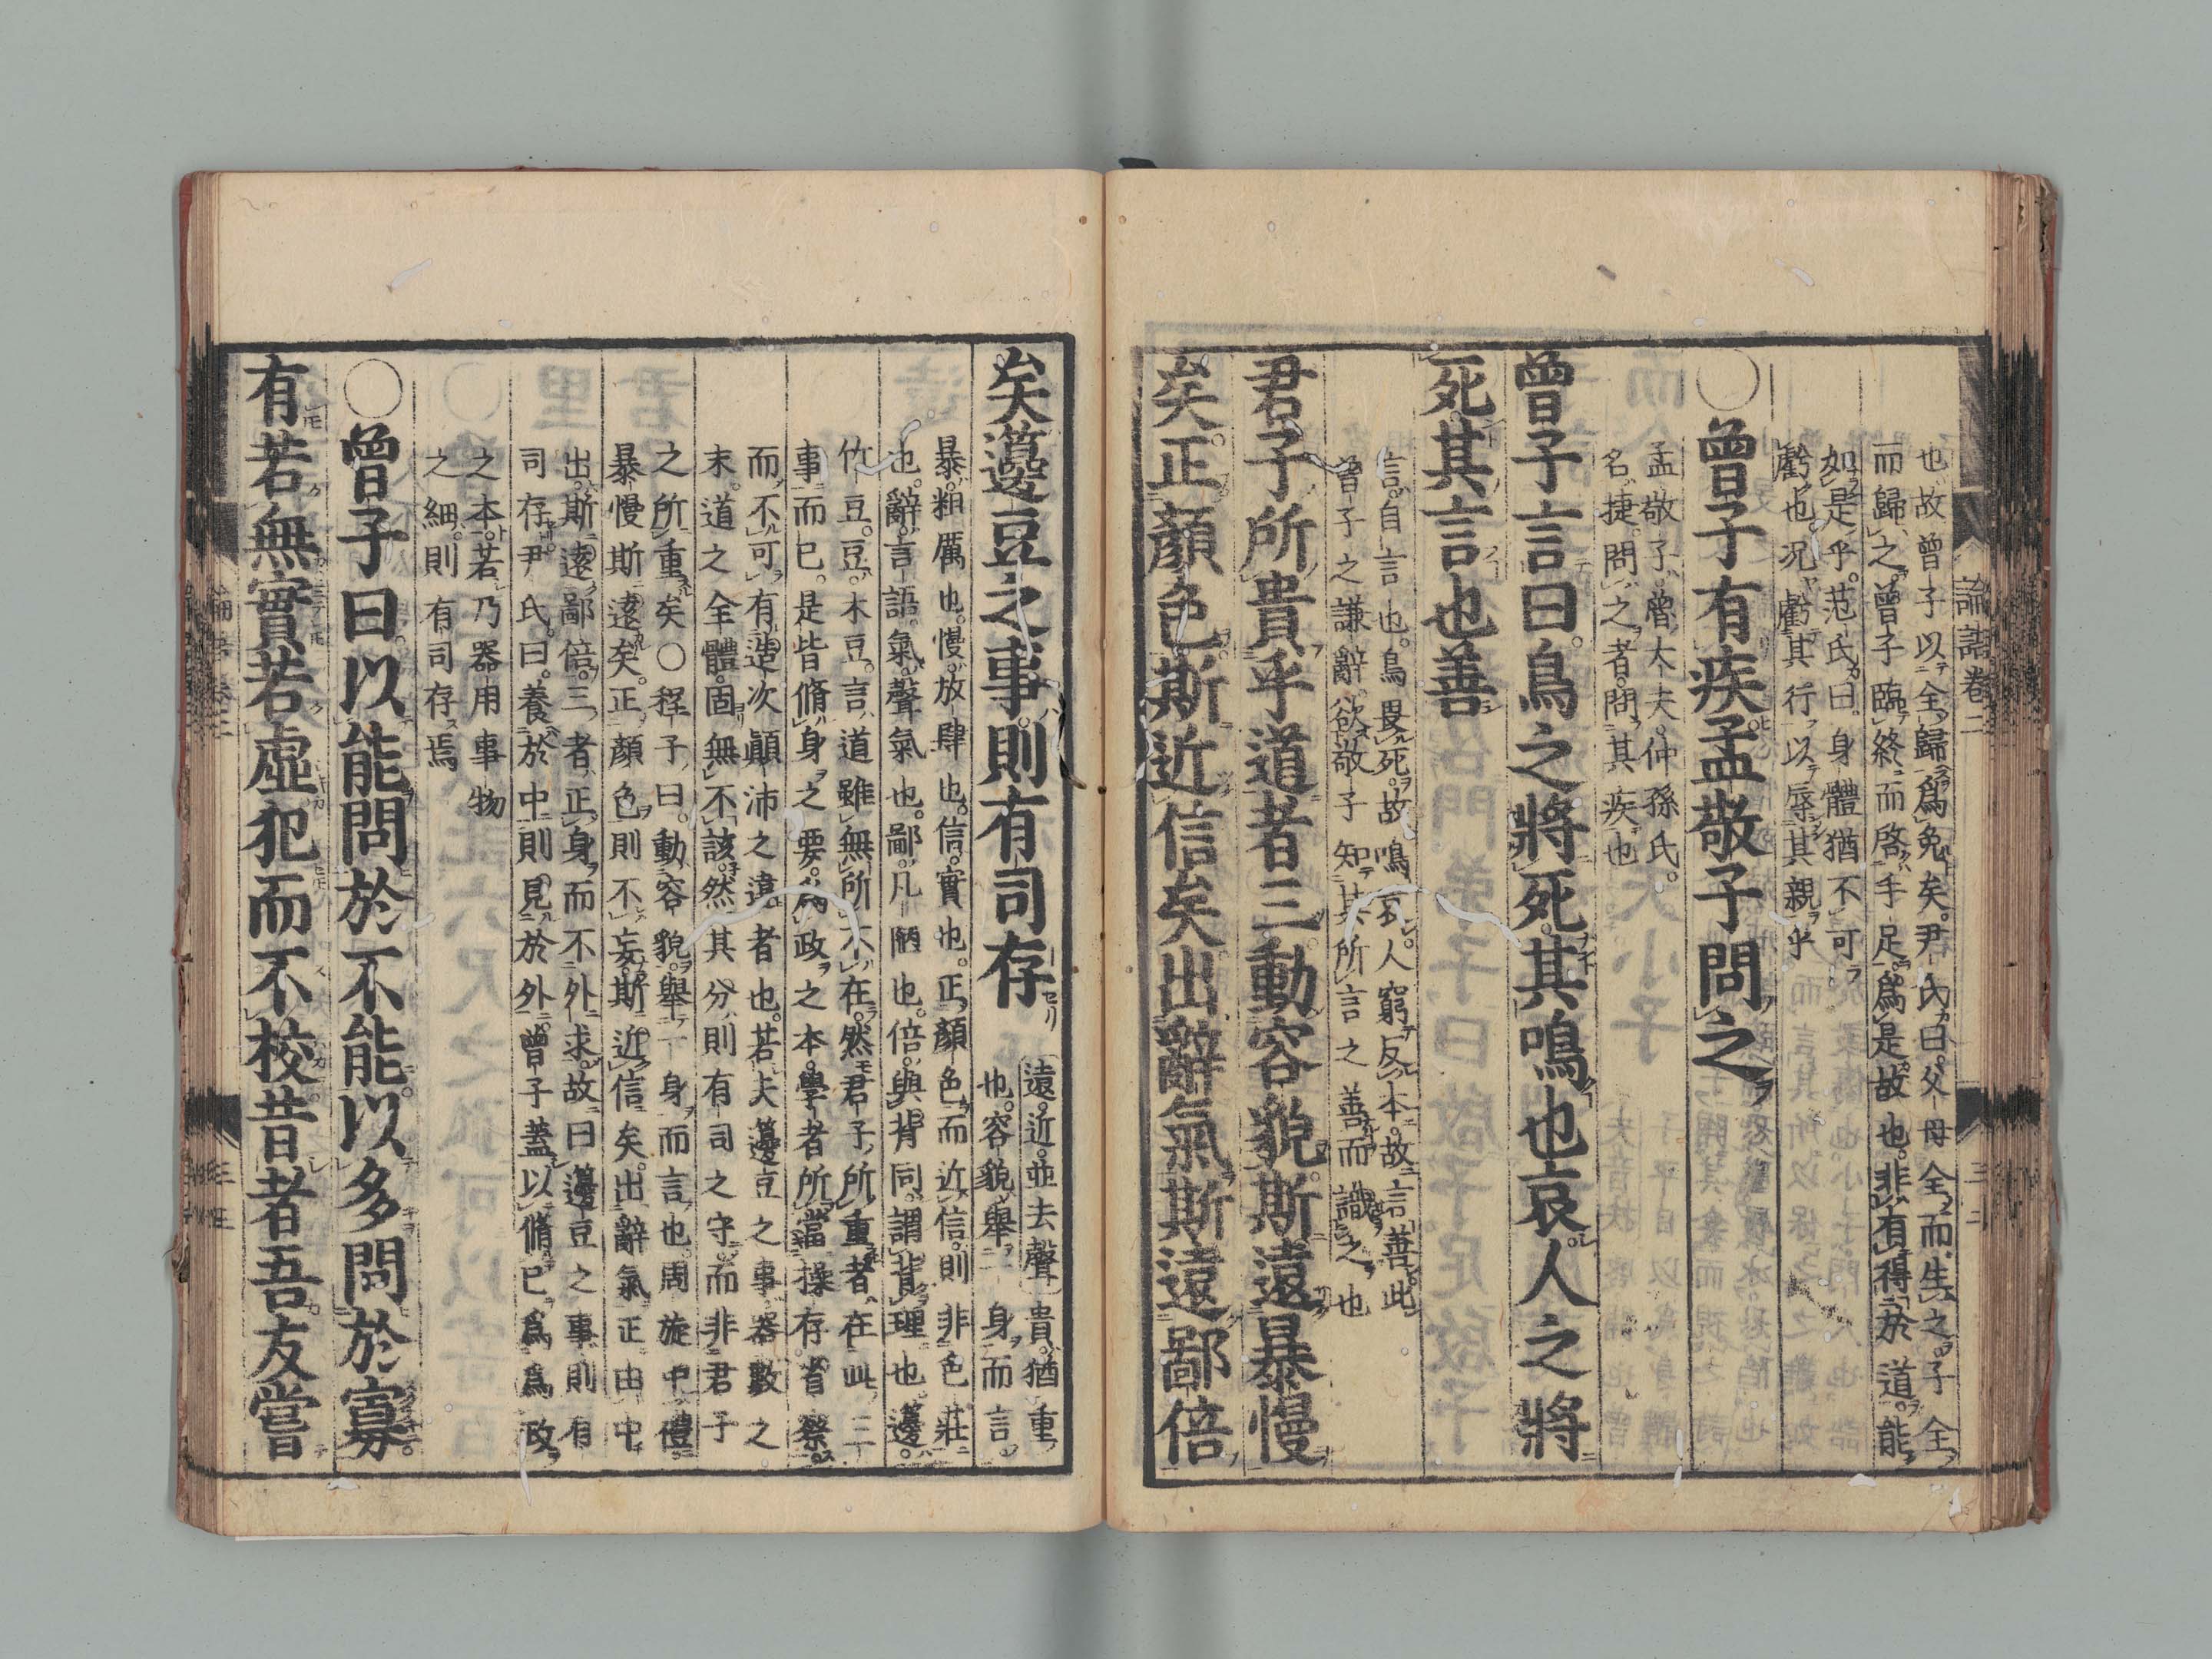 論語卷二
也故曾子以全歸爲免矣尹氏曰父母全而生之子全
而歸之曾子臨終而啓手足爲是故也非有得於道能
如是乎范氏曰身體猶不可
虧也况虧其行以辱其親乎
○曾子有疾孟敬子問之
孟敬子魯大夫仲孫氏
名捷問之者問其疾也
曾子言曰鳥之將死其鳴也哀人之將
死其言也善
言自言也鳥畏死故鳴哀人窮反本故言善此
曾子之謙辭欲敬子知其所言之善而識之也
君子所貴乎道者三動容貌斯遠暴慢
矣正顏色斯近信矣出辭氣斯遠鄙倍
矣籩豆之事則有司存
遠近並去聲 貴猶重
也容貌舉一身而言
暴粗厲也慢放肆也信實也正顏色而近信則非色莊
也辭言語氣聲氣也鄙凡陋也倍與背同謂背理也籩
竹豆豆木豆言道雖無所不在然君子所重者在此三
事而已是皆脩身之要爲政之本學者所當操存省察
而不可有造次顚沛之違者也若夫籩豆之事器數之
末道之全體固無不該然其分則有司之守而非君子
之所重矣○程子曰動容貌舉一身而言也周旋中禮
暴慢斯遠矣正顏色則不妄斯近信矣出辭氣正由中
出斯遠鄙倍三者正身而不外求故曰籩豆之事則有
司存尹氏曰養於中則見於外曾子蓋以脩己爲爲政
之本若乃器用事物
之細則有司存焉
○曾子曰以能問於不能以多問於寡
有若無實若虛犯而不校昔者吾友嘗